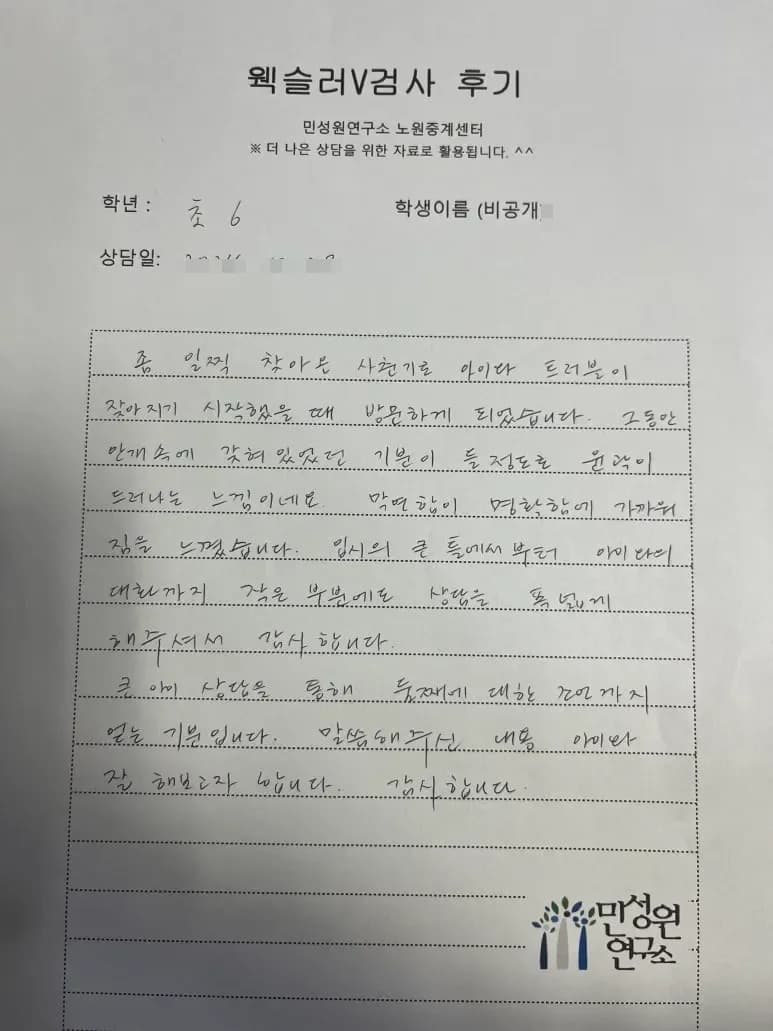 웩슬러V검사 후기
민성원연구소 노원중계센터
※ 더 나은 상담을 위한 자료로 활용됩니다. ^^
학년 : 초 6
학생이름 (비공개)
상담일:
좀 일찍 찾아온 사춘기로 아이와 트러블이
잦아지기 시작했을 때 방문하게 되었습니다. 그동안
안개속에 갖혀있었던 기분이 들정도로 윤곽이
드러나는 느낌이네요. 막연함이 명확함에 가까워
짐을 느꼈습니다. 입시의 큰 틀에서부터 아이와의
대화까지 작은 부분에도 상담을 폭넓게
해주셔서 감사합니다.
큰아이 상담을 통해 둘째에 대한 조언까지
얻는 기분입니다. 말씀해주신 내용 아이와
잘 해보고자 합니다. 감사합니다.
민성원
연구소